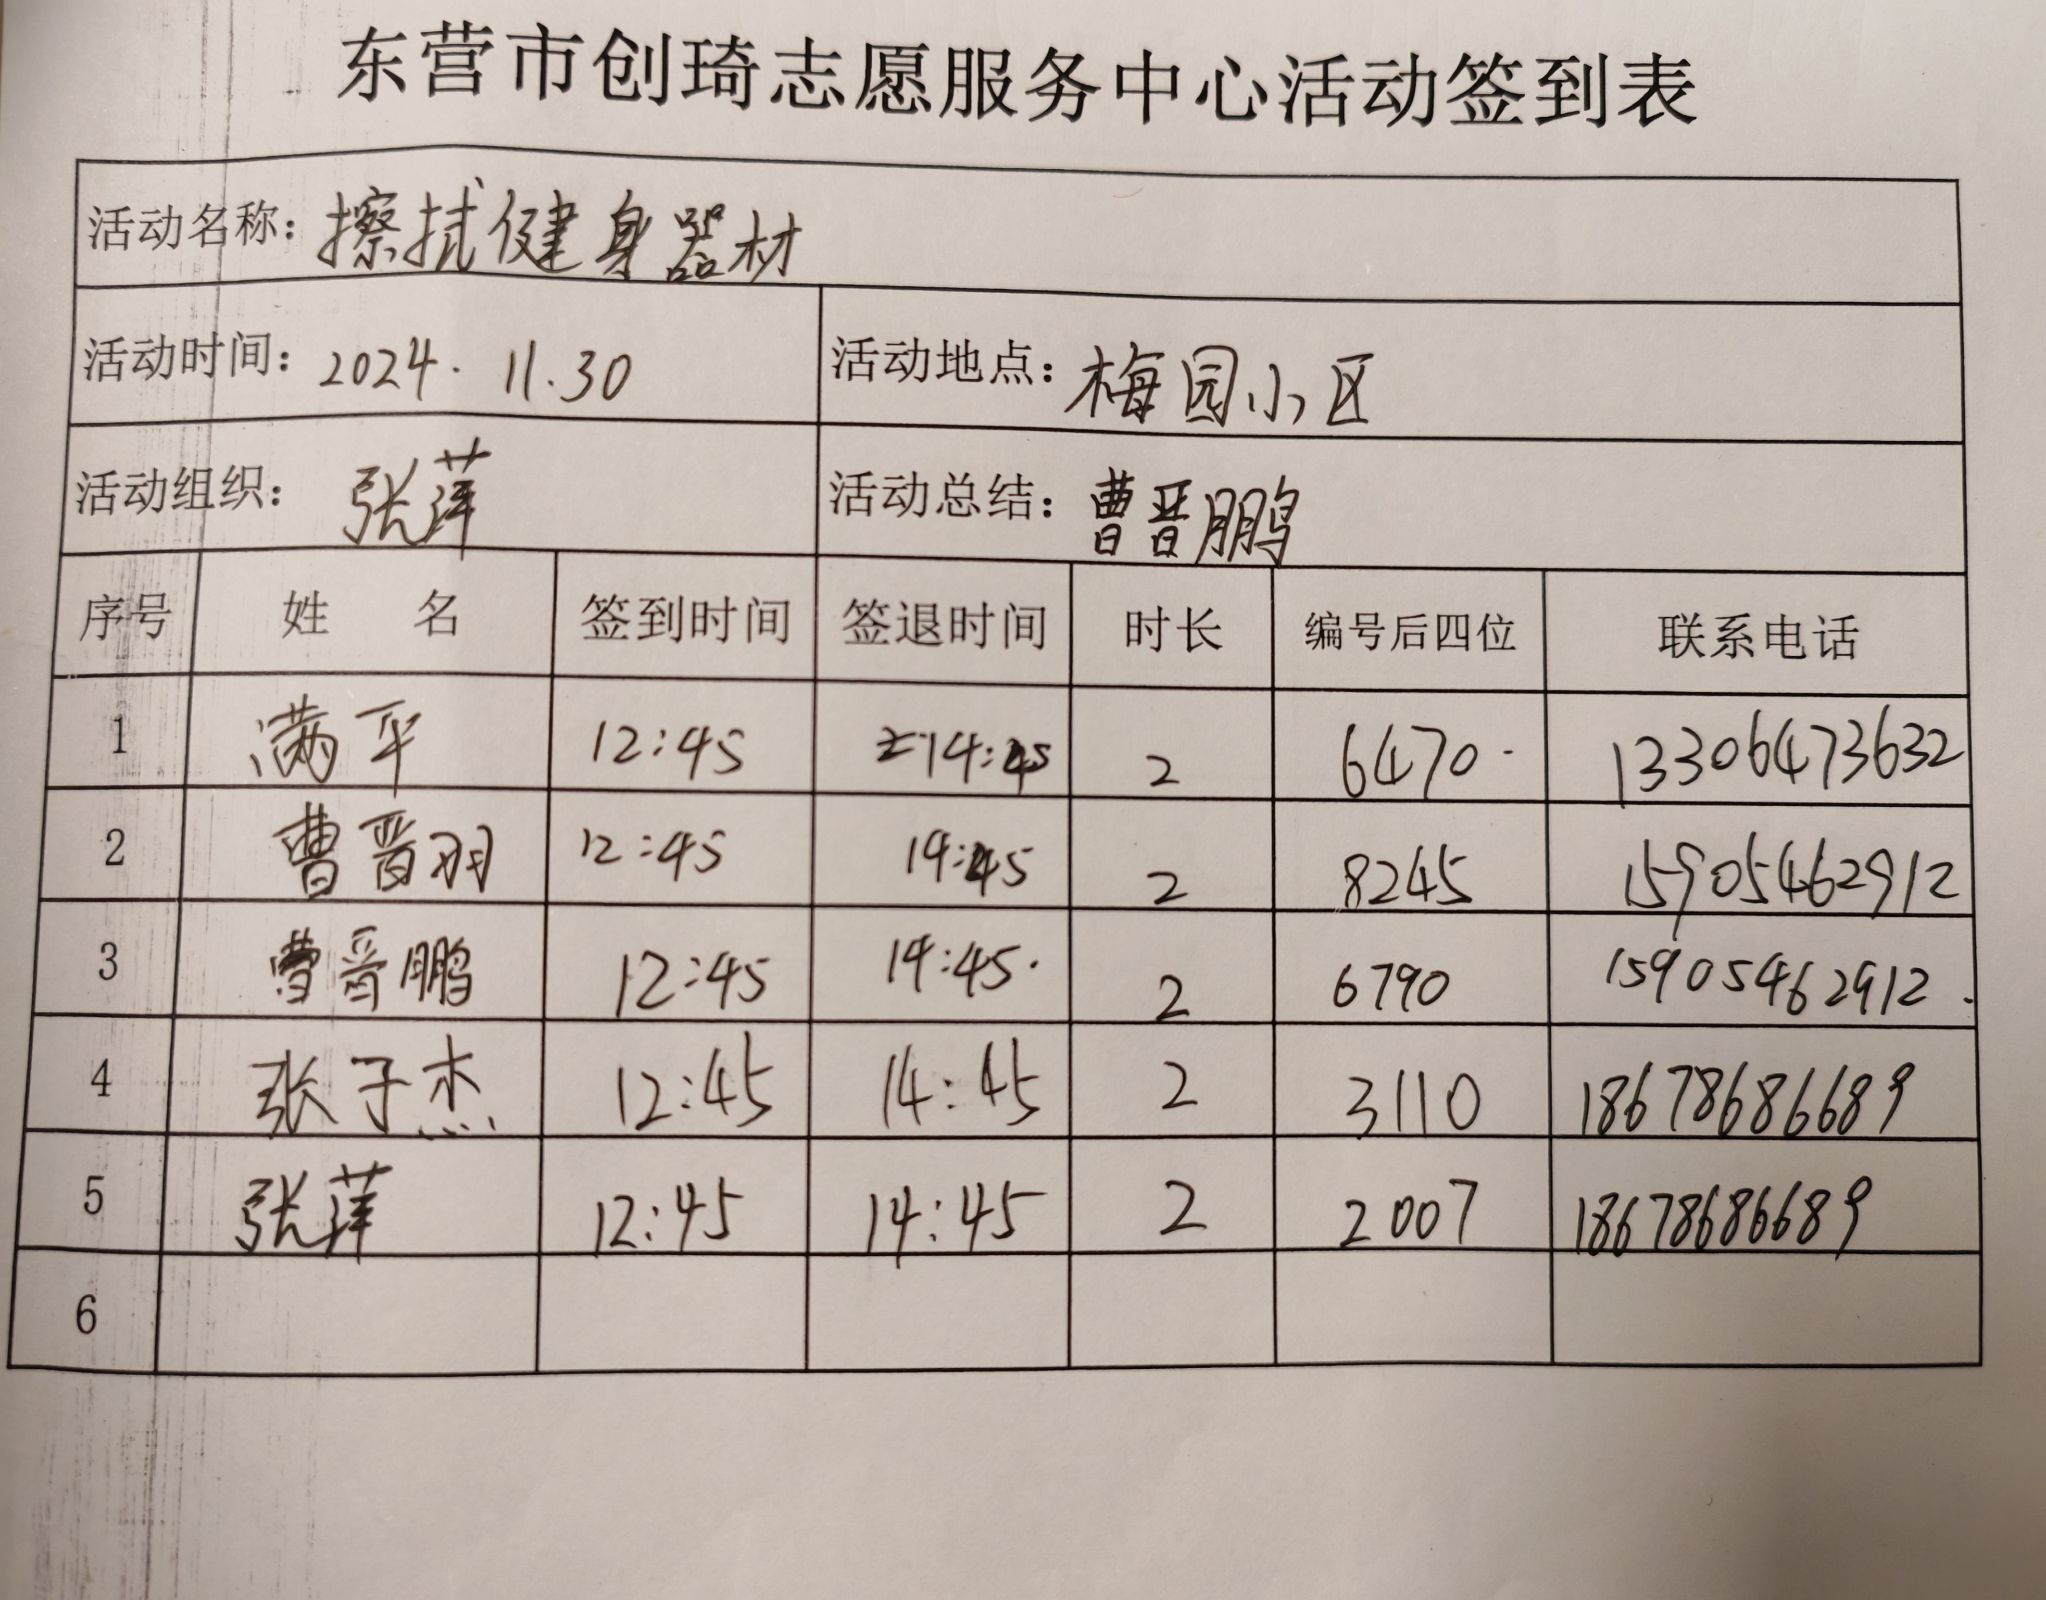 东营市创琦志愿服务中心活动签到表
活动名称：擦拭健身器材
活动时间：2024.11.30 活动地点：梅园小区
活动组织：张萍 活动总结：曹晋鹏
序号 姓 名 签到时间 签退时间 时长 编号后四位 联系电话
1 满平 12:45 14:45 2 6470 13306473632
2 曹晋羽 12:45 14:45 2 8245 15905462912
3 曹晋鹏 12:45 14:45 2 6790 15905462912
4 张子杰 12:45 14:45 2 3110 18678686689
5 张萍 12:45 14:45 2 2007 18678686689
6